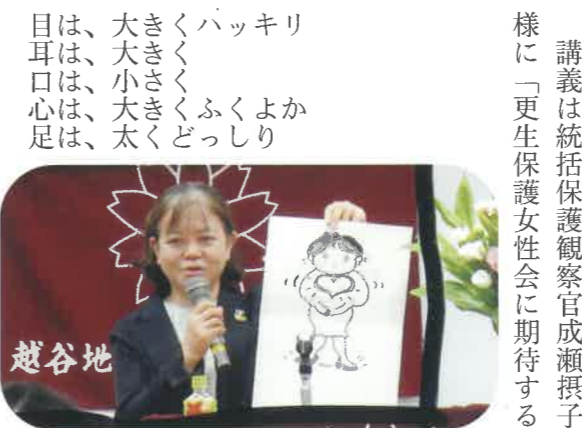 講義は統括保護観察官成瀬摂子
様に「更生保護女性会に期待する
目は、大きくハッキリ
耳は、大きく
口は、小さく
心は、大きくふくよか
足は、太くどっしり
越谷地